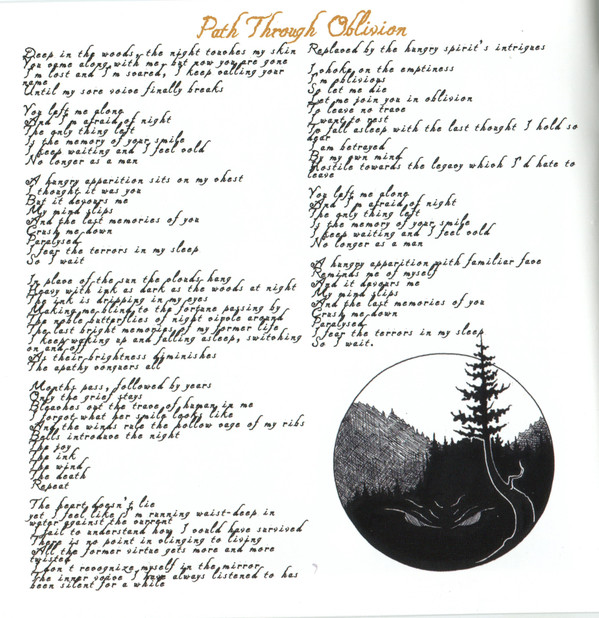 Path Through Oblivion
Deep in the woods, the night touches my skin
You came along with me, but now you are gone
I'm lost and I'm scared, I keep calling your
name
Until my sore voice finally breaks
You left me alone
And I'm afraid of night
The only thing left
Is the memory of your smile
I keep waiting and I feel cold
No longer as a man
A hungry apparition sits on my chest
I thought it was you
But it devours me
My mind slips
And the last memories of you
Crush me down
Paralysed
I fear the terrors in my sleep
So I wait
In place of the sun the clouds hang
Heavy with ink as dark as the woods at night
The ink is dripping in my eyes
Making me blind to the fortune passing by
The noble butterflies of night circle around
The last bright memories of my former life
I keep waking up and falling asleep, switching
on and off
As their brightness diminishes
The apathy conquers all
Months pass, followed by years
Only the grief stays
Bleaches out the trace of human in me
I forgot what her smile looks like
And the winds rule the hollow cage of my ribs
Bells introduce the night
The joy
The ink
The wind
The death
Repeat
The heart doesn't lie
yet I feel like I'm running waist-deep in
water against the current
I fail to understand how I could have survived
There is no point in clinging to living
All the former virtue gets more and more
twisted
I don't recognize myself in the mirror
The inner voice I have always listened to has
been silent for a while
Replaced by the hungry spirit's intrigues
I choke on the emptiness
I'm oblivious
So let me die
Let me join you in oblivion
To leave no trace
I want to rest
To fall asleep with the last thought I hold so
dear
I am betrayed
By my own mind
Hostile towards the legacy which I'd hate to
leave
You left me alone
And I'm afraid of night
The only thing left
Is the memory of your smile
I keep waiting and I feel cold
No longer as a man
A hungry apparition with familiar face
Reminds me of myself
And it devours me
My mind slips
And the last memories of you
Crush me down
Paralysed
I fear the terrors in my sleep
So I wait.